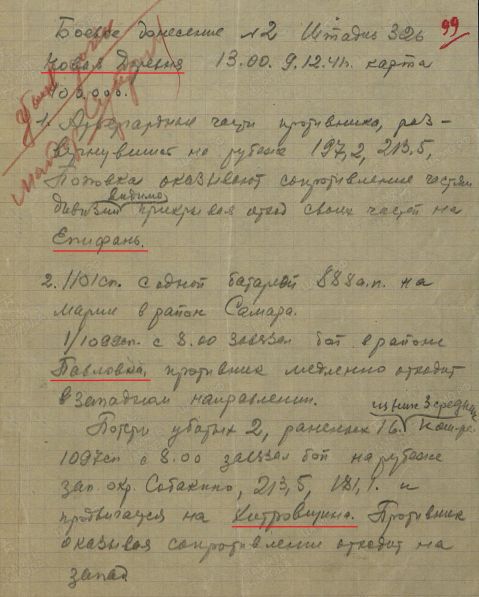 99
Боевое донесение №2 Штадив 326
Новая Деревня 13.00. 9.12.41г. карта
100.000.
1. Арьергардные части противника, раз-
вернувшись на рубеже 197,2, 213,5,
Поповка оказывают сопротивление частям
дивизии видимо прикрывая отход своих частей на
Епифань.
2. 1101сп. с одной батареей 888 а.п. на
марше в район Самара.
1/1099сп. с 8.00 завязал бой в районе
Павловка, противник медленно отходит
в западном направлении.
из них 3 средних
Потери убитых 2, раненых 16.
1097сп с 8.00 завязал бой на рубеже
зап. окр. Собакино, 213,5, 181,1. и
продвигается на Хитровщина. Противник
оказывая сопротивление отходит на
запад